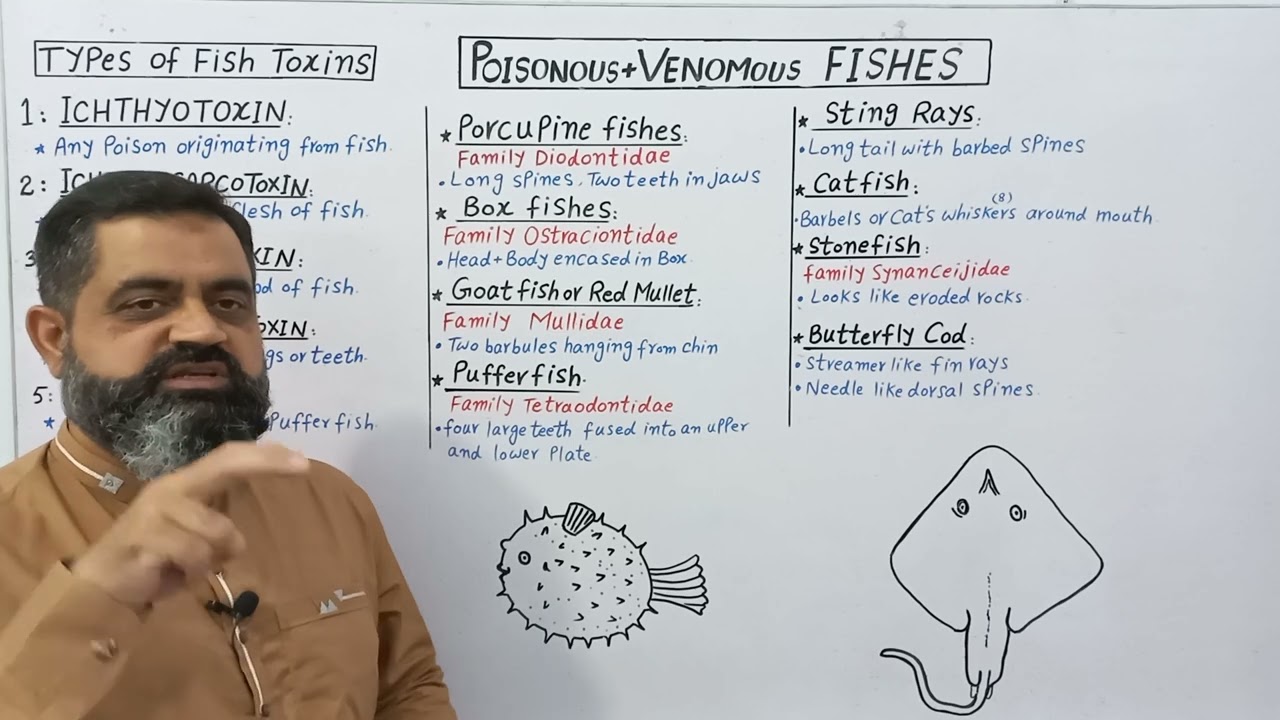 Types of Fish Toxins
1: ICHTHYOTOXIN:
* Any Poison originating from fish.
2: COTOXIN:
flesh of fish.
of fish.
or teeth.
5:
* Puffer fish.
POISONOUS+VENOMOUS FISHES
* Porcupine fishes:
Family Diodontidae
• Long spines, Two teeth in jaws
* Box fishes:
Family Ostraciontidae
• Head+Body encased in Box.
* Goatfish or Red Mullet:
Family Mullidae
• Two barbules hanging from chin
* Pufferfish.
Family Tetraodontidae
• four large teeth fused into an upper
and lower Plate.
* Sting Rays:
• Long tail with barbed spines
* Catfish:
(8)
• Barbels or Cat's whiskers around mouth.
* Stonefish:
family Synanceijidae
• Looks like eroded rocks.
* Butterfly Cod:
• Streamer like fin rays
• Needle like dorsal spines.